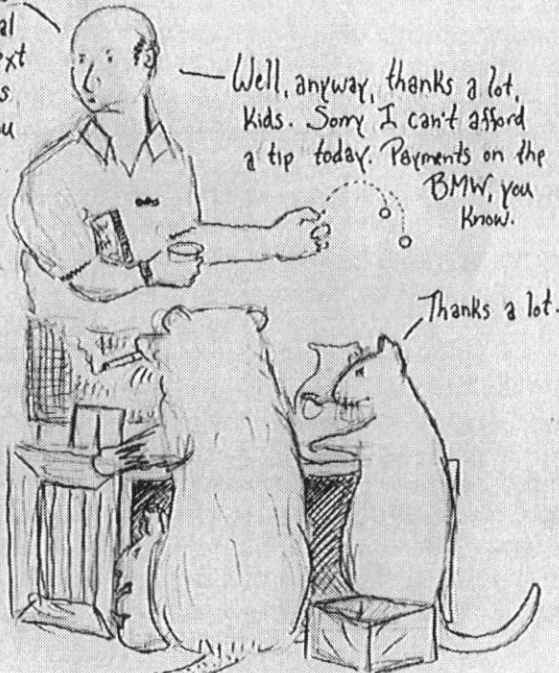 al
ext
s
ou
Well, anyway, thanks a lot,
kids. Sorry I can't afford
a tip today. Payments on the
BMW, you
know.
Thanks a lot.